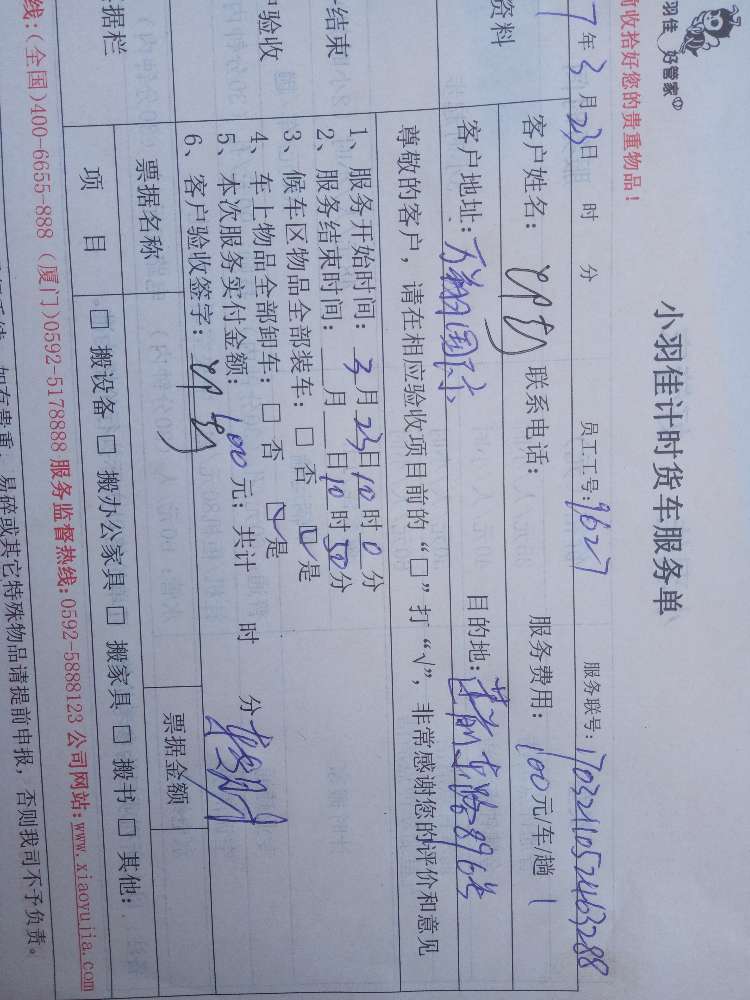 羽佳 好管家
前收拾好您的贵重物品！
小羽佳计时货车服务单
7年3月23日 时 分 员工工号：9627 服务联号：1703211052463288
资料
客户姓名： 联系电话： 服务费用：100元/车/趟
客户地址：万翔国际 目的地：莲前东路896号
尊敬的客户，请在相应验收项目前的“□”打“√”，非常感谢您的评价和意见
结束
验收
1、服务开始时间：3月23日10时0分
2、服务结束时间： 月 日10时50分
3、候车区物品全部装车：□ 否 ☑是
4、车上物品全部卸车：□ 否 ☑是
5、本次服务实付金额：100元；共计 时 分
6、客户验收签字：
据栏
票据名称 票据金额
项 目 □ 搬设备 □ 搬办公家具 □ 搬家具 □ 搬书 □ 其他：
线：(全国)400-6655-888 (厦门)0592-5178888 服务监督热线：0592-5888123 公司网站：www.xiaoyujia.com
如有贵重、易碎或其它特殊物品请提前申报，否则我司不予负责。